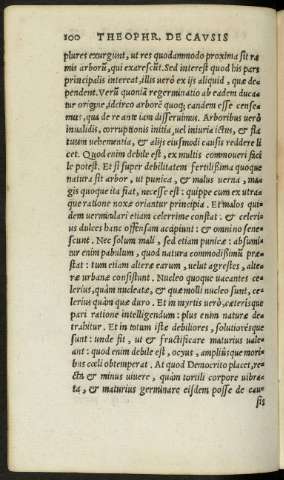 100 THEOPHR. DE CAVSIS
plures exurgunt, ut res quodammodo proxima sit ra
mis arborũ, qui exarescũt. Sed interest quod his pars
principalis intereat, illis uerò ex ijs aliquid, quæ de-
pendent. Verũ quoniã regerminatio ab eadem ducα-
tur origine, idcirco arborẽ quoq; eandem esse cense-
mus, qua de re ante iam disseruimus. Arboribus uerò
inualidis, corruptionis initia, uel iniuria ictus, & fla
tuum uehementia, & alijs eiusmodi causis reddere li
cet. Quod enim debile est, ex multis commoueri facĩ
le potest. Et si super debilitatem fertilissima quoque
natura sit arbor, ut punica, & malus uerna, ma-
gis quoque ita fiat, necesse est: quippe cum ex utra-
que ratione noxæ oriantur principia. Et malos qui-
dem uermiculari etiam celerrime constat: & celeri-
us dulces hanc offensam accipiunt: & omnino sene-
scunt. Nec solum mali, sed etiam punicæ: absumi-
tur enim pabulum, quod natura commodissimũ præ-
stat: tum etiam alteræ earum, uelut agrestes, alte-
ræ urbanæ consistunt. Nucleo quoque uacantes ce-
lerius, quàm nucleatæ, & quæ molli nucleo sunt, ce-
lerius quàm quæ duro. Et in myrtis uerò, cæterisque
pari ratione intelligendum: plus enim naturæ de-
trahitur. Et in totum istæ debiliores, solutioresque
sunt: unde fit, ut & fructificare maturius uale-
ant: quod enim debile est, ocyus, ampliusque mori-
bus cœli obtemperat. At quod Democrito placet, re-
cta & minus uiuere, quàm tortili corpore uibra-
ta, & maturius germinare eisdem posse de cau-
sis